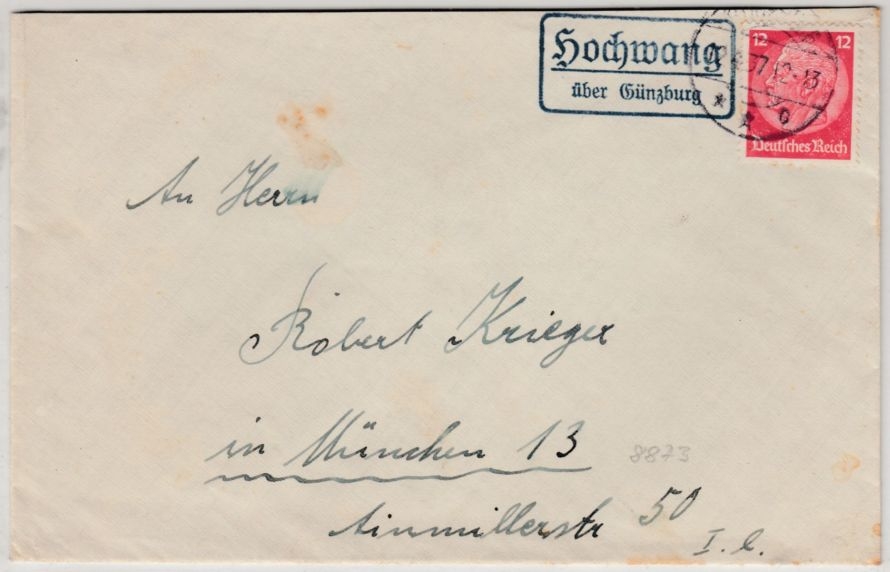 Hochwang
über Günzburg
12 12
37 12-13
Deutsches Reich
An Herrn
Robert Krieger
in München 13
8873
Ainmillerstr 50
I. l.